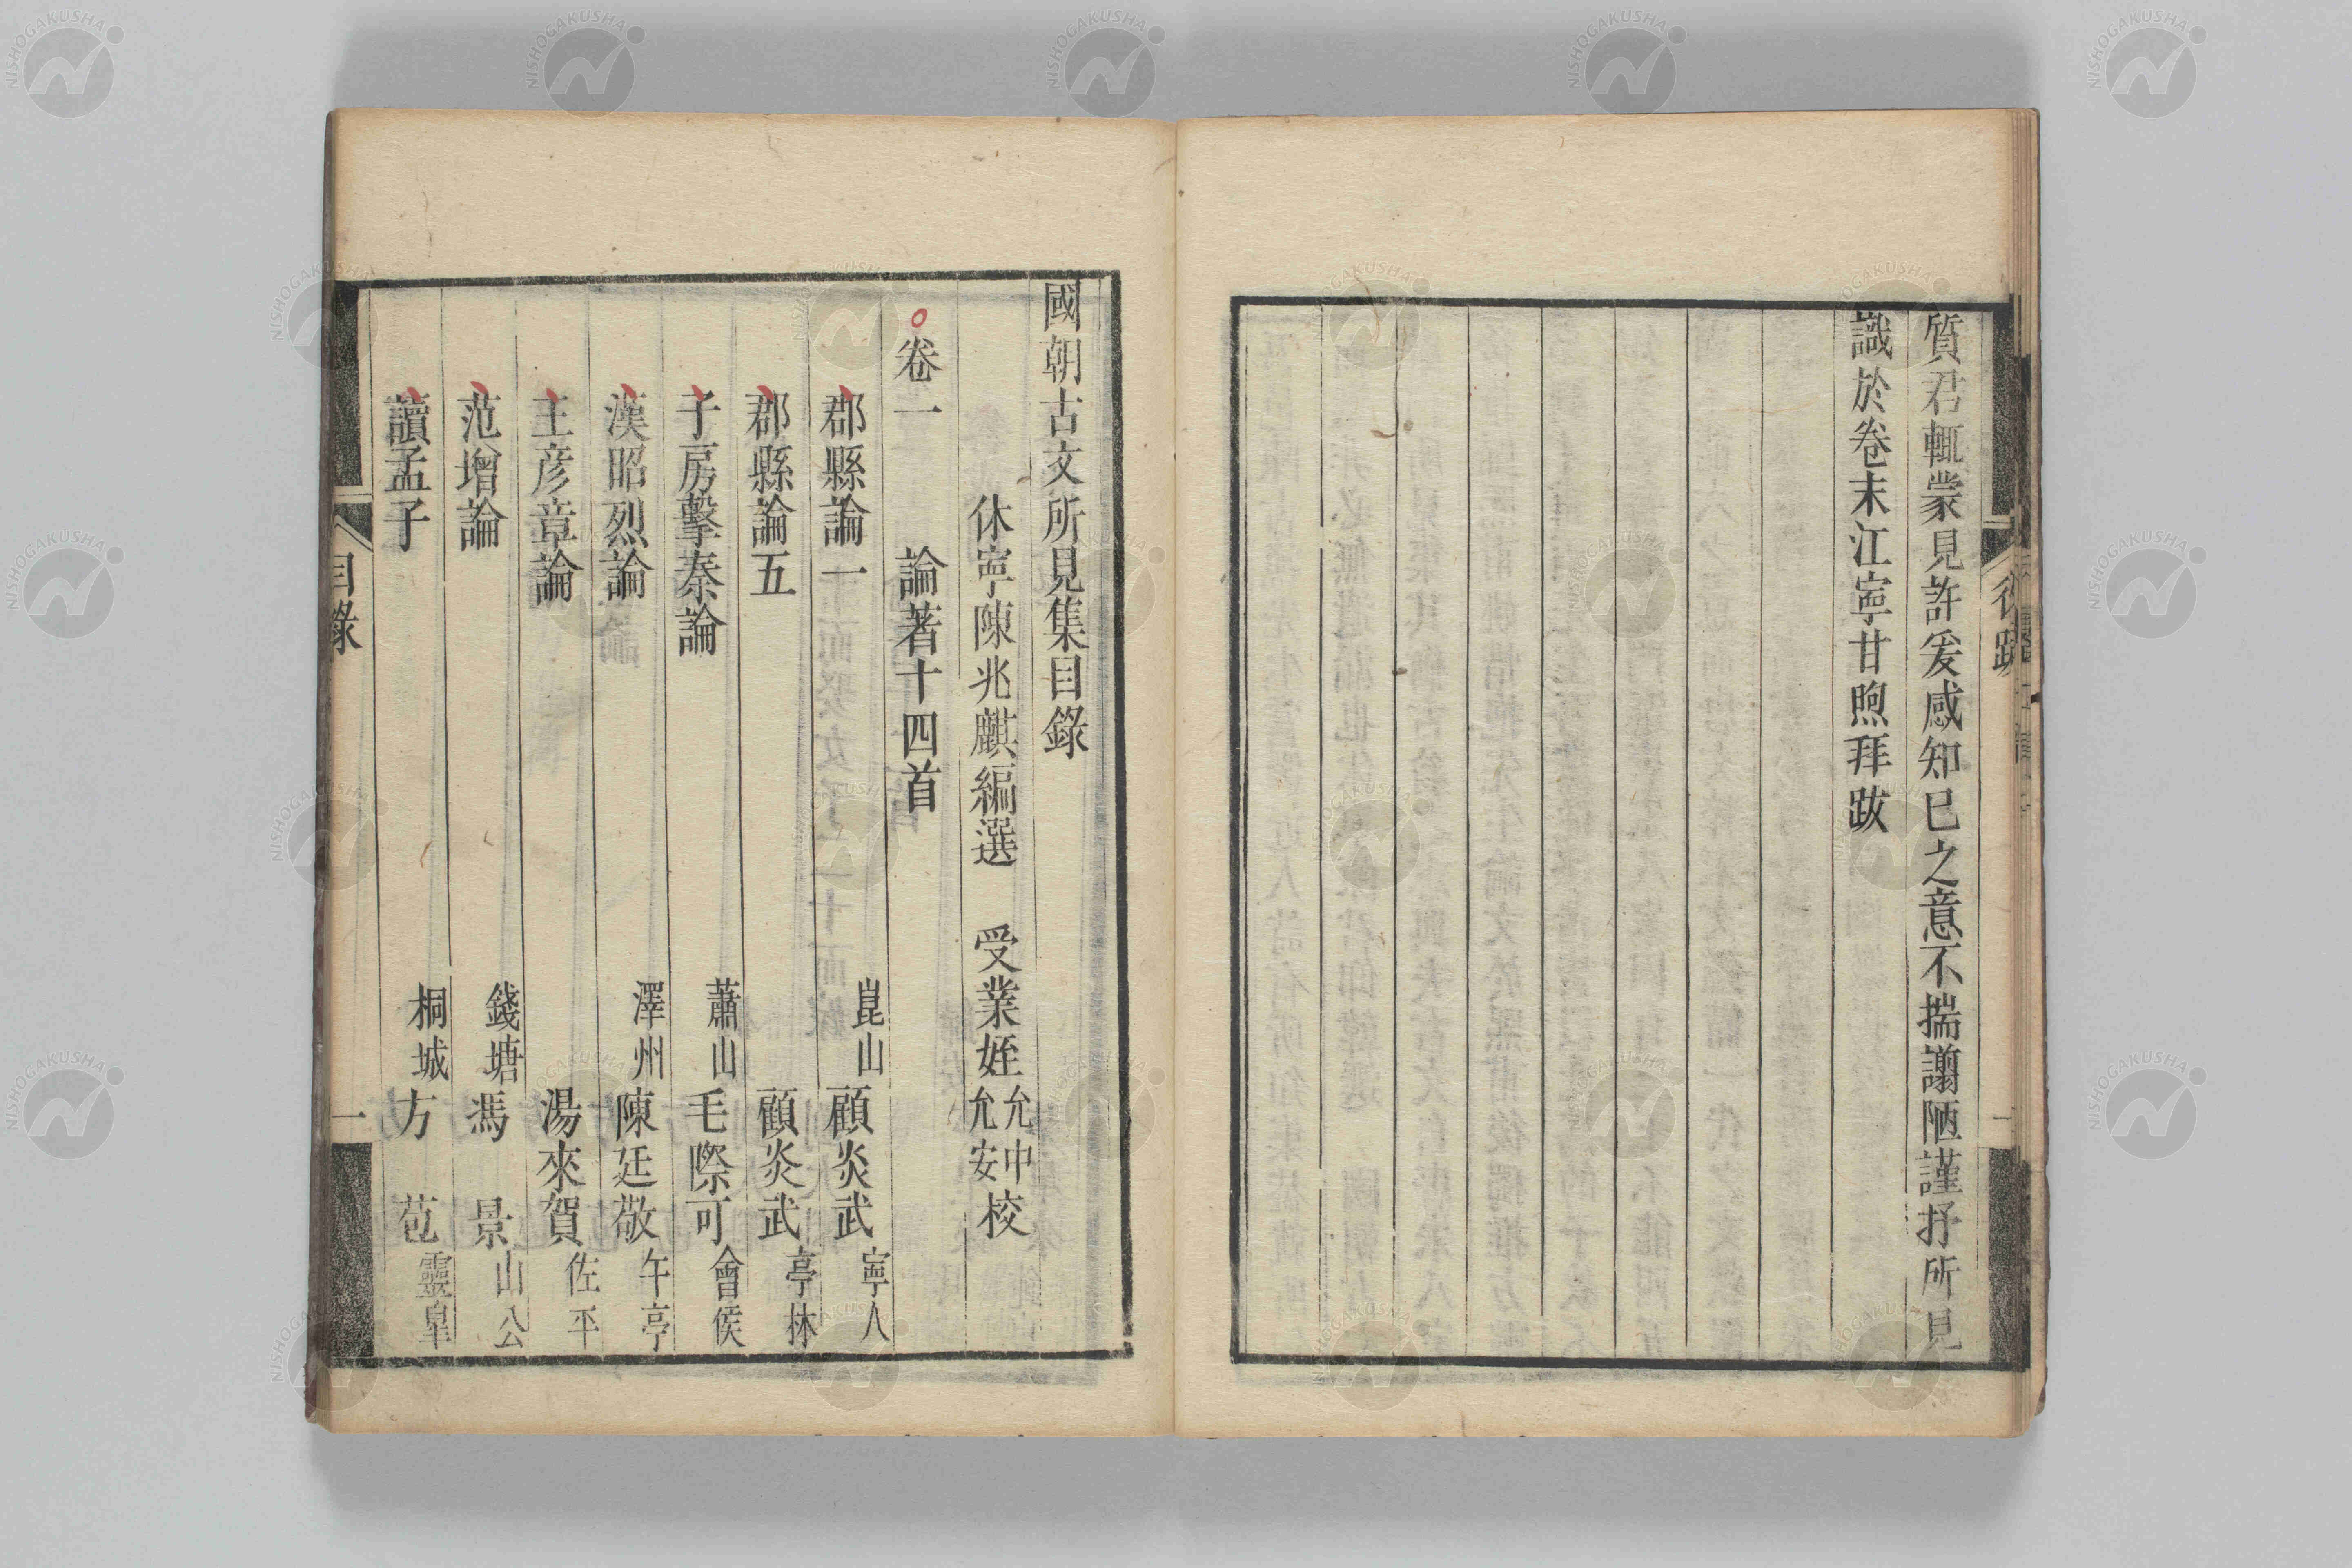 質君輒蒙見許爰感知已之意不揣謭陋謹抒所見
識於卷末江寧甘煦拜跋
後跋
一
國朝古文所見集目錄
休寧陳兆麒編選 受業姪允中允安校
卷一 論著十四首
郡縣論一 崑山顧炎武寧人
郡縣論五 顧炎武亭林
子房擊秦論 蕭山毛際可會侯
漢昭烈論 澤州陳廷敬午亭
王彥章論 湯來賀佐平
范增論 錢塘馮景山公
讀孟子 桐城方苞靈皐
目錄
一
NISHOGAKUSHA